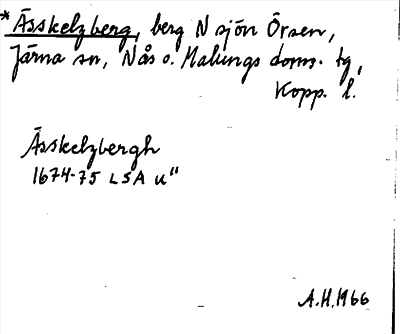 * Ässkelzberg, berg N sjön Örsen,
Järna sn, Nås o. Malungs doms. tg,
Kopp. l.
Ässkelzbergh
1674-75 LSA u"
A.H.1966